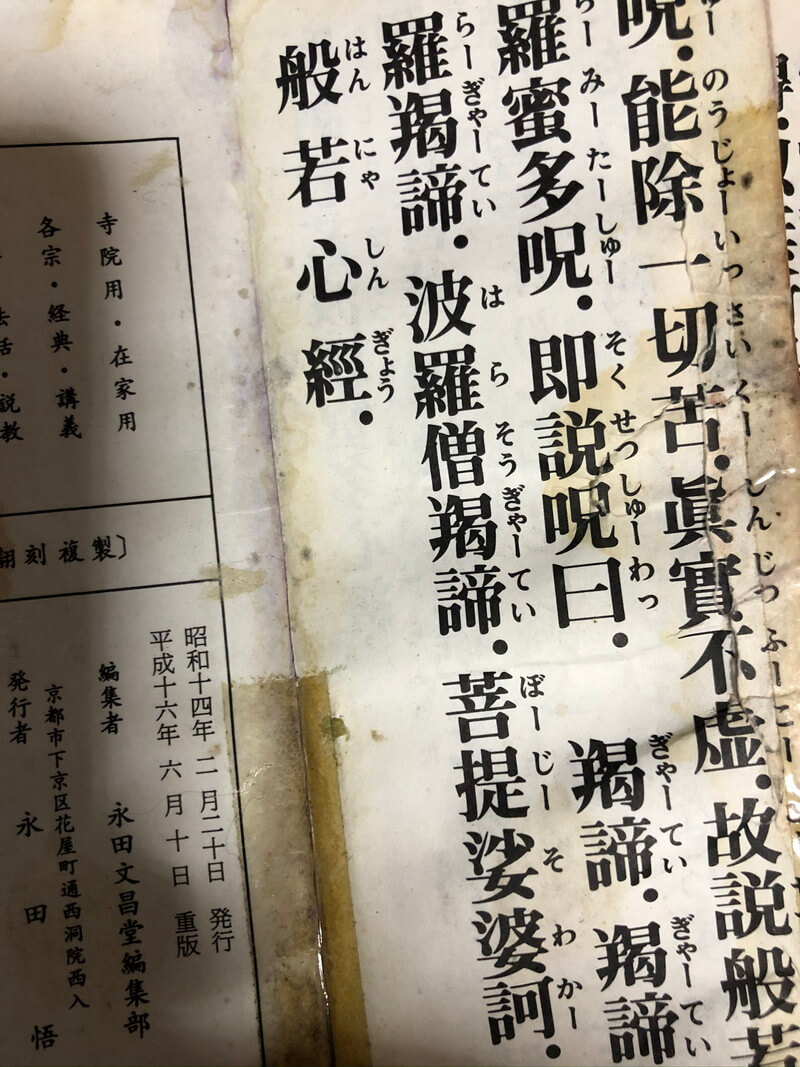 のうじょーいっさいくー しんじつふーこー
呪・能除一切苦・眞實不虚・故説般若
らーみーたーしゅー そくせつしゅーわっ ぎゃーてい ぎゃーてい
羅蜜多呪・即説呪曰・ 羯諦・羯諦
らーぎゃーてい はらそうぎゃーてい ぼーじーそわかー
羅羯諦・波羅僧羯諦・菩提娑婆訶・
はんにゃしんぎょう
般若心經・
寺院用・在家用
各宗・経典・講義
法話・説教
刻複製〕
昭和十四年二月二十日 発行
平成十六年六月十日 重版
編集者 永田文昌堂編集部
京都市下京区花屋町通西洞院西入
発行者 永田 悟